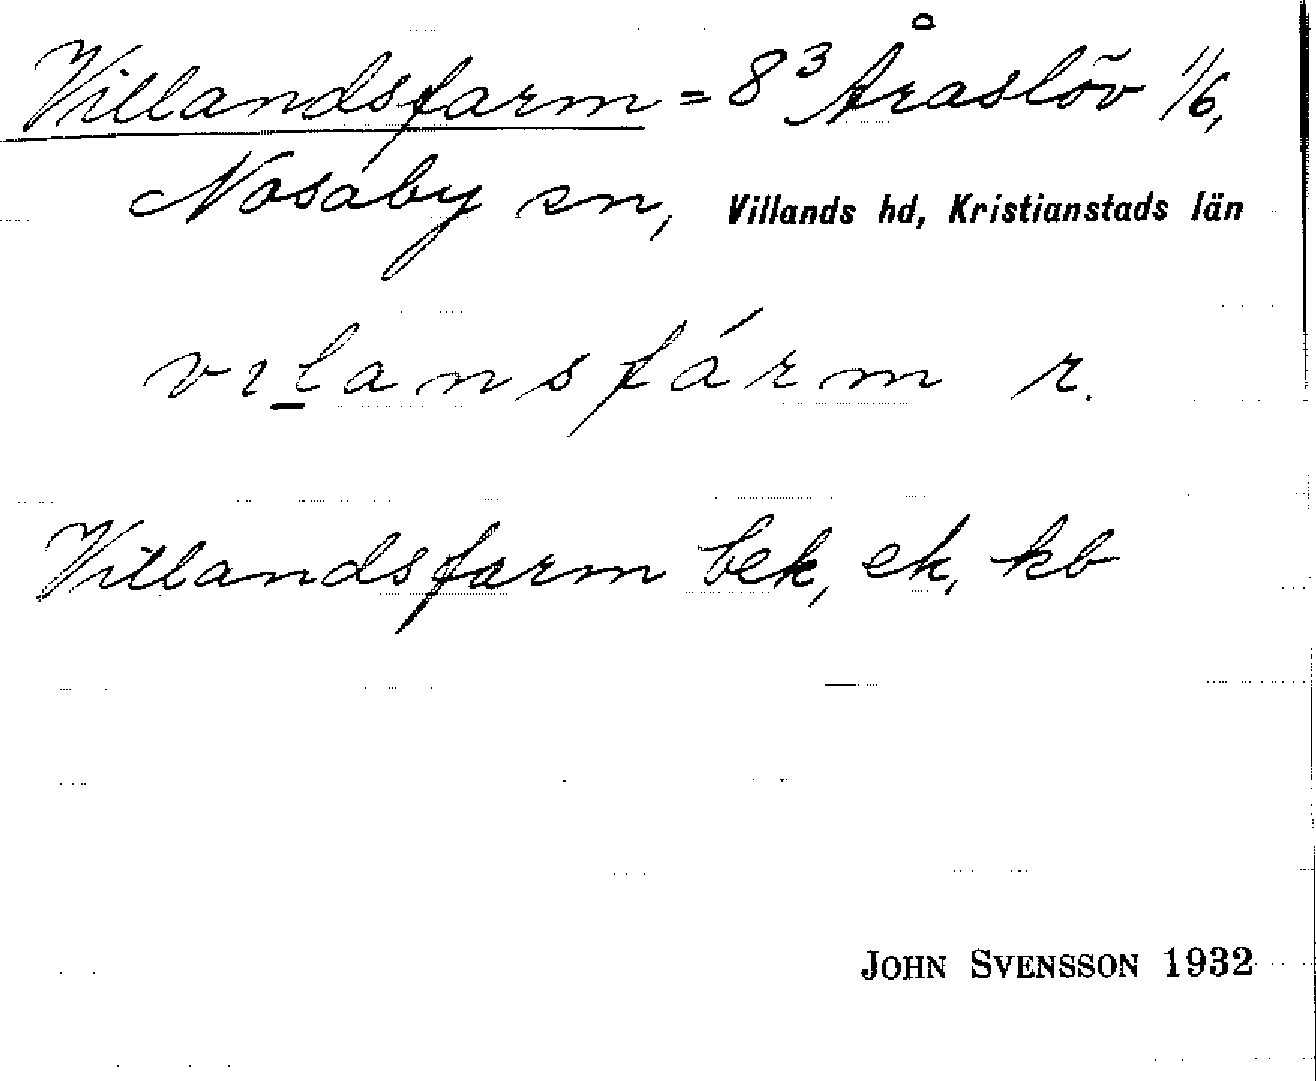 Villandsfarm = 8³ Åraslöv 1/6,
Nosaby sn, Villands hd, Kristianstads län
vɩlansfárm r.
Villandsfarm bek, ek, kb
JOHN SVENSSON 1932